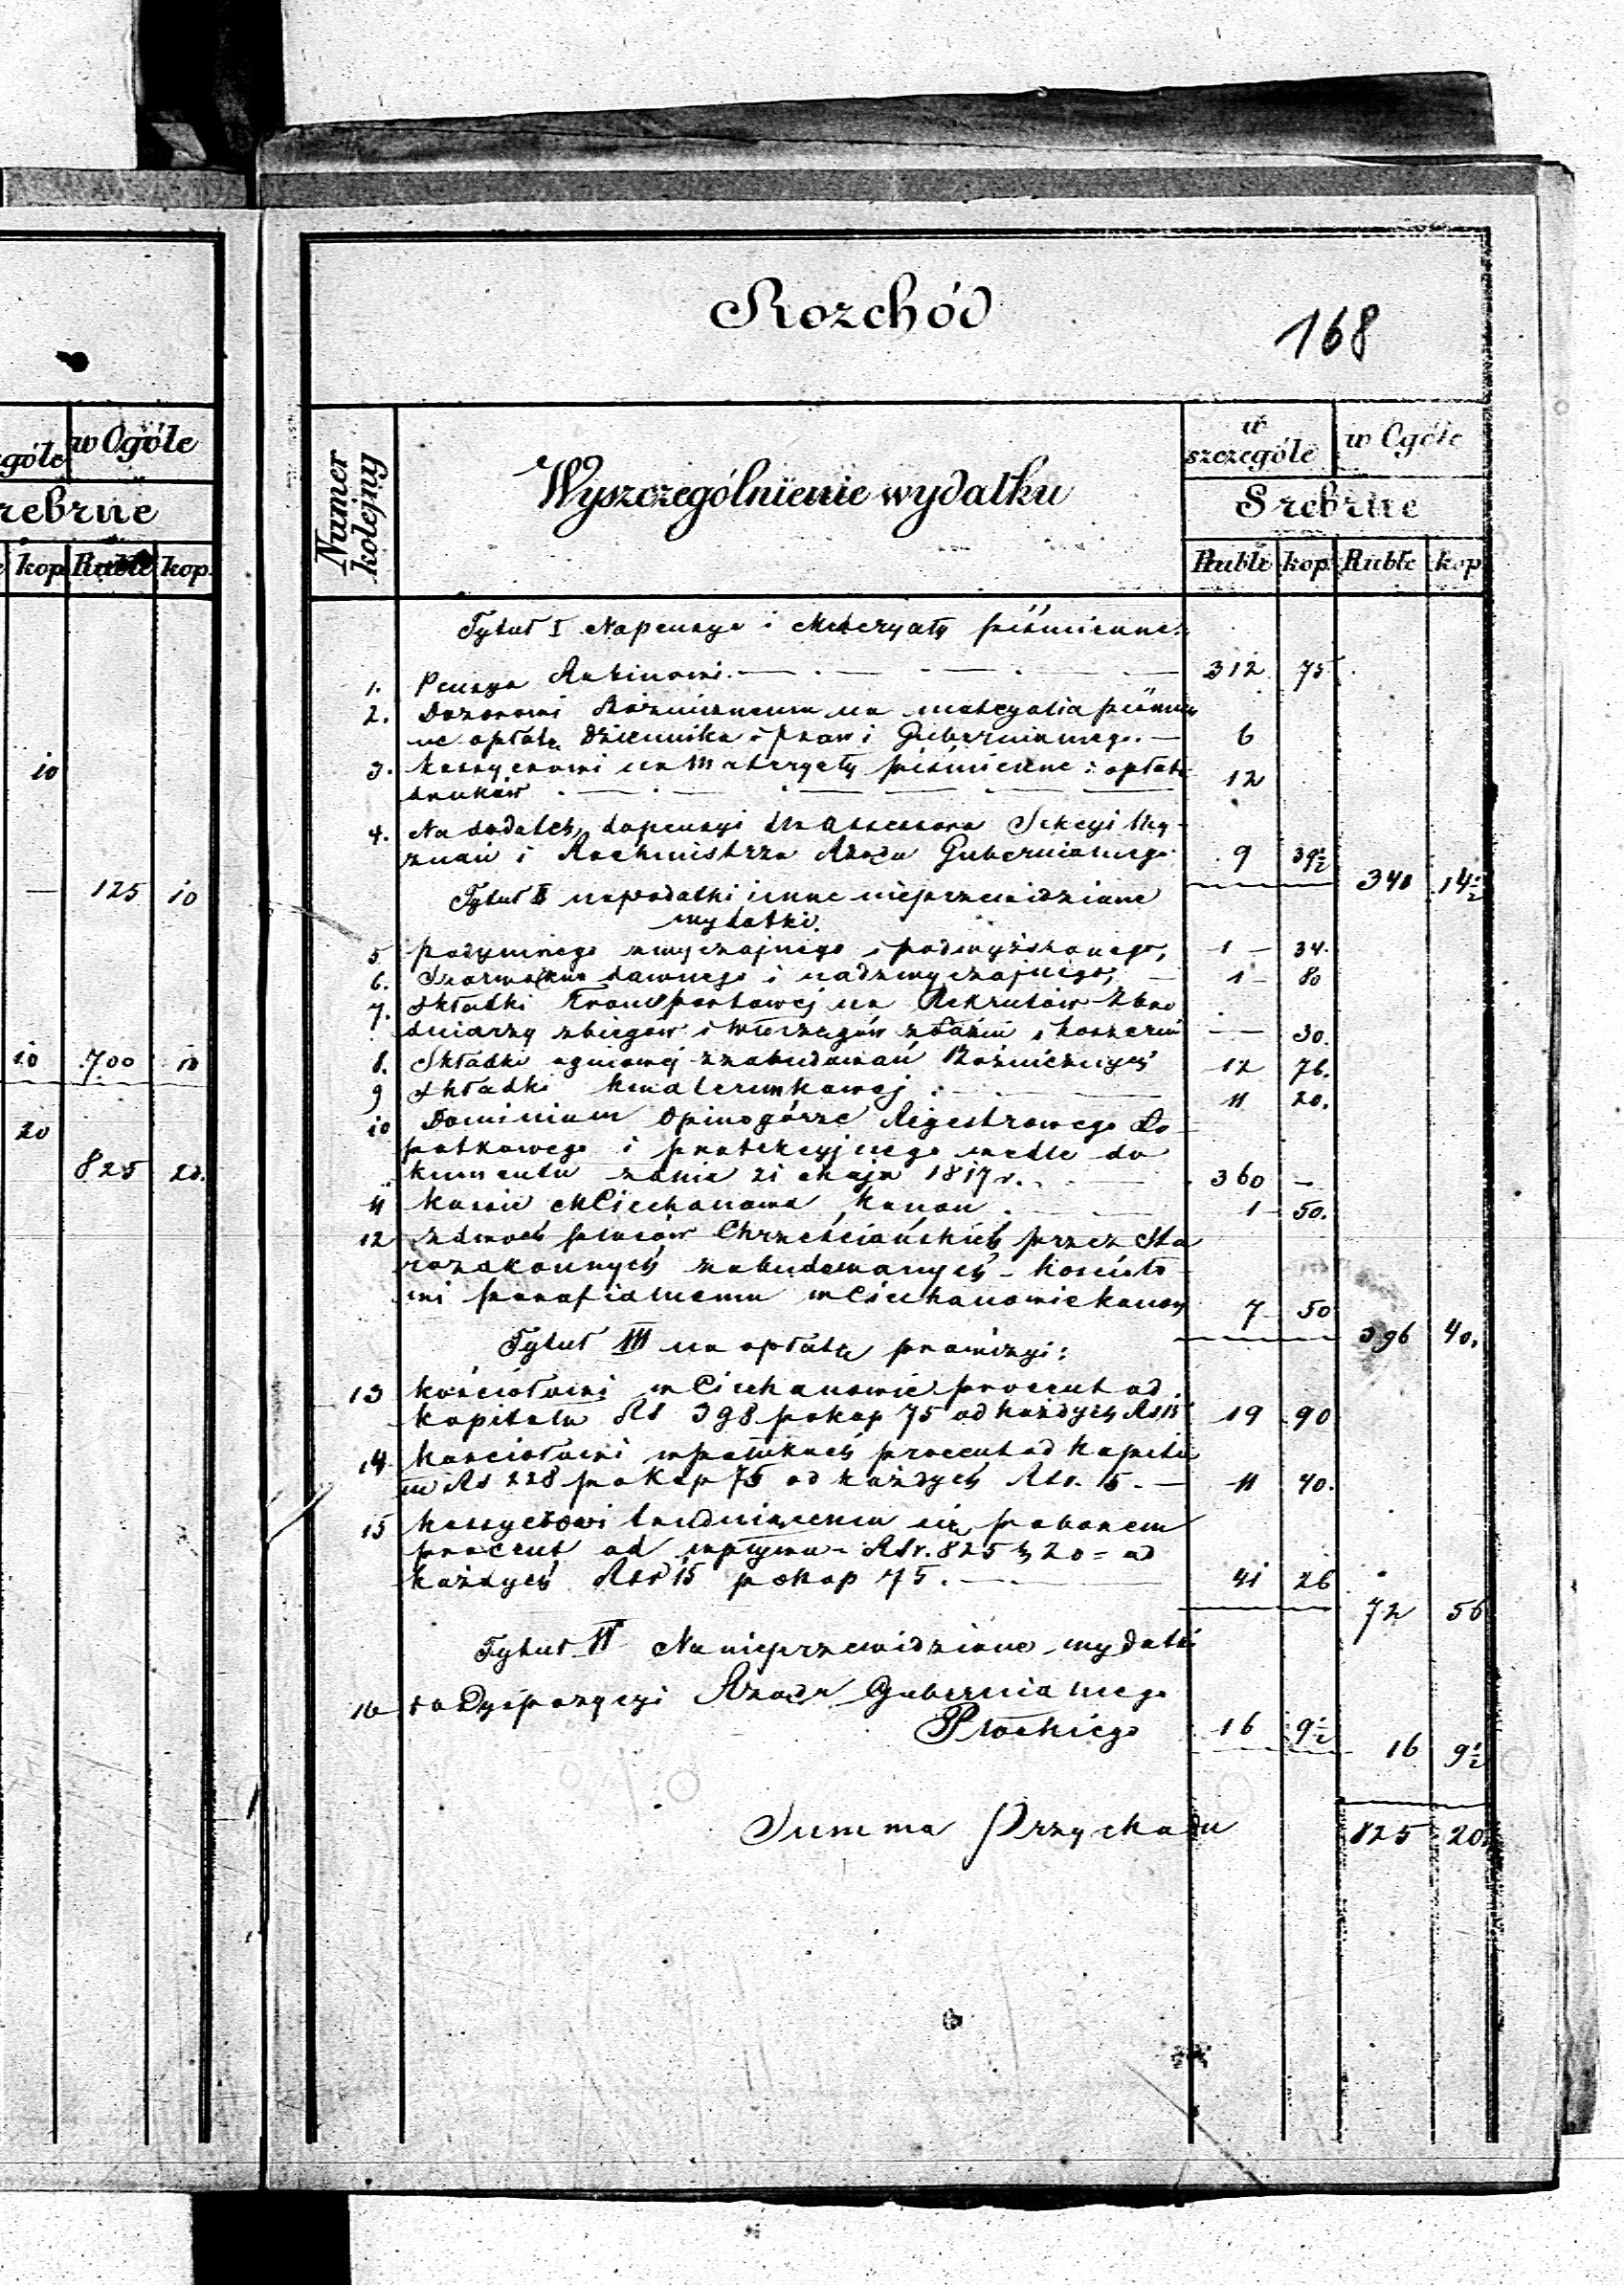 w Ogóle
góle
rebrne
kop Ruble kop.
10
— 125 10
10 700 10
20
825 20.
Rozchód
168
Numer kolejny
Wyszczególnienie wydatku
w szczególe
w Ogóle
Srebrne
Ruble kop Ruble kop
Tytuł I Na pensye i Materyały piśmienne.
1. Pensya Rabinowi. 312 75
2. Dozorowi Bóżnicznemu na materyalia piśmien
ne opłatę Dziennika praw i Gubernianego. — 6
3. Kassyerowi na Materyały piśmienne i opłatę
druków 12
4. Na dodatek do pensyi dla Assessora Sekcyi Wy
znań i Rachmistrza Rządu Gubernialnego 9 39½
340 14½
Tytuł II na podatki i inne nieprzewidziane
wydatki.
5 podymnego zwyczajnego i podwyższonego, 1 — 34.
6. Szarwarku dawnego i nadzwyczajnego, — 1 — 80
7. Składki Transportowej na Rekrutów Zbro
dniarzy zbiegów i Włóczęgów — — 30.
8. Składki ogniowej z zabudowań Bóżnicznych 12 76.
9 Składki kwaterunkowej : 11 20.
10 Dominium Opinogórze Rejestrowego
i protekcyjnego wedle do
kumentu z dnia 21 Maja 1817 r. 360 —
11 Kassie M Ciechanowa, Kanon 1 — 50.
12 z dwóch placów Chrześciańskich przez Sta
rozakonnych zabudowanych — Kościoło
wi parafialnemu w Ciechanowie kanon 7 50
396 40.
Tytuł III na opłatę prowizyi:
13 Kościołowi w Ciechanowie procent od
kapitału Rs 398 po kop 75 od każdych Rs 15 19 90
14 Kościołowi w procent od kapitału
Rs 228 po Kop 75 od każdych Rsr. 15. — 11 40.
15 Kassyerowi trudniącemu się poborem
procent od wpływu Rsr. 825 k 20 = od
każdych Rsr 15 po kop 75. 41 26
72 56
Tytuł IV Na nieprzewidziane wydatki
16 do Dyspozycyi Rządu Gubernialnego
Płockiego 16 9½
16 9½
Summa Przychodu 825 20